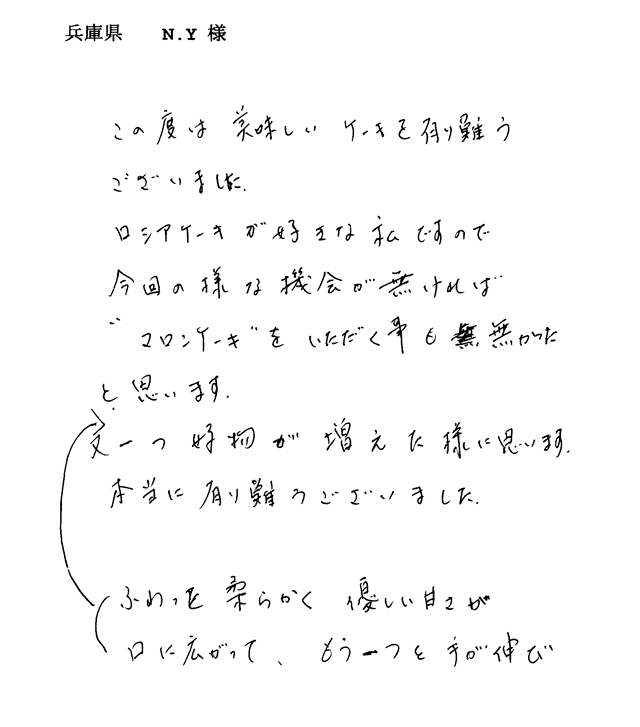 兵庫県 N.Y 様
この度は 美味しい ケーキを有り難う
ございました.
ロシアケーキが好きな私ですので
今回の様な機会が無ければ
“マロンケーキ”を いただく事も 無かった
と思います.
又一つ好物が増えた様に思います.
本当に有り難うございました.
ふわっと柔らかく 優しい甘さが
口に広がって、もう一つと手が伸び